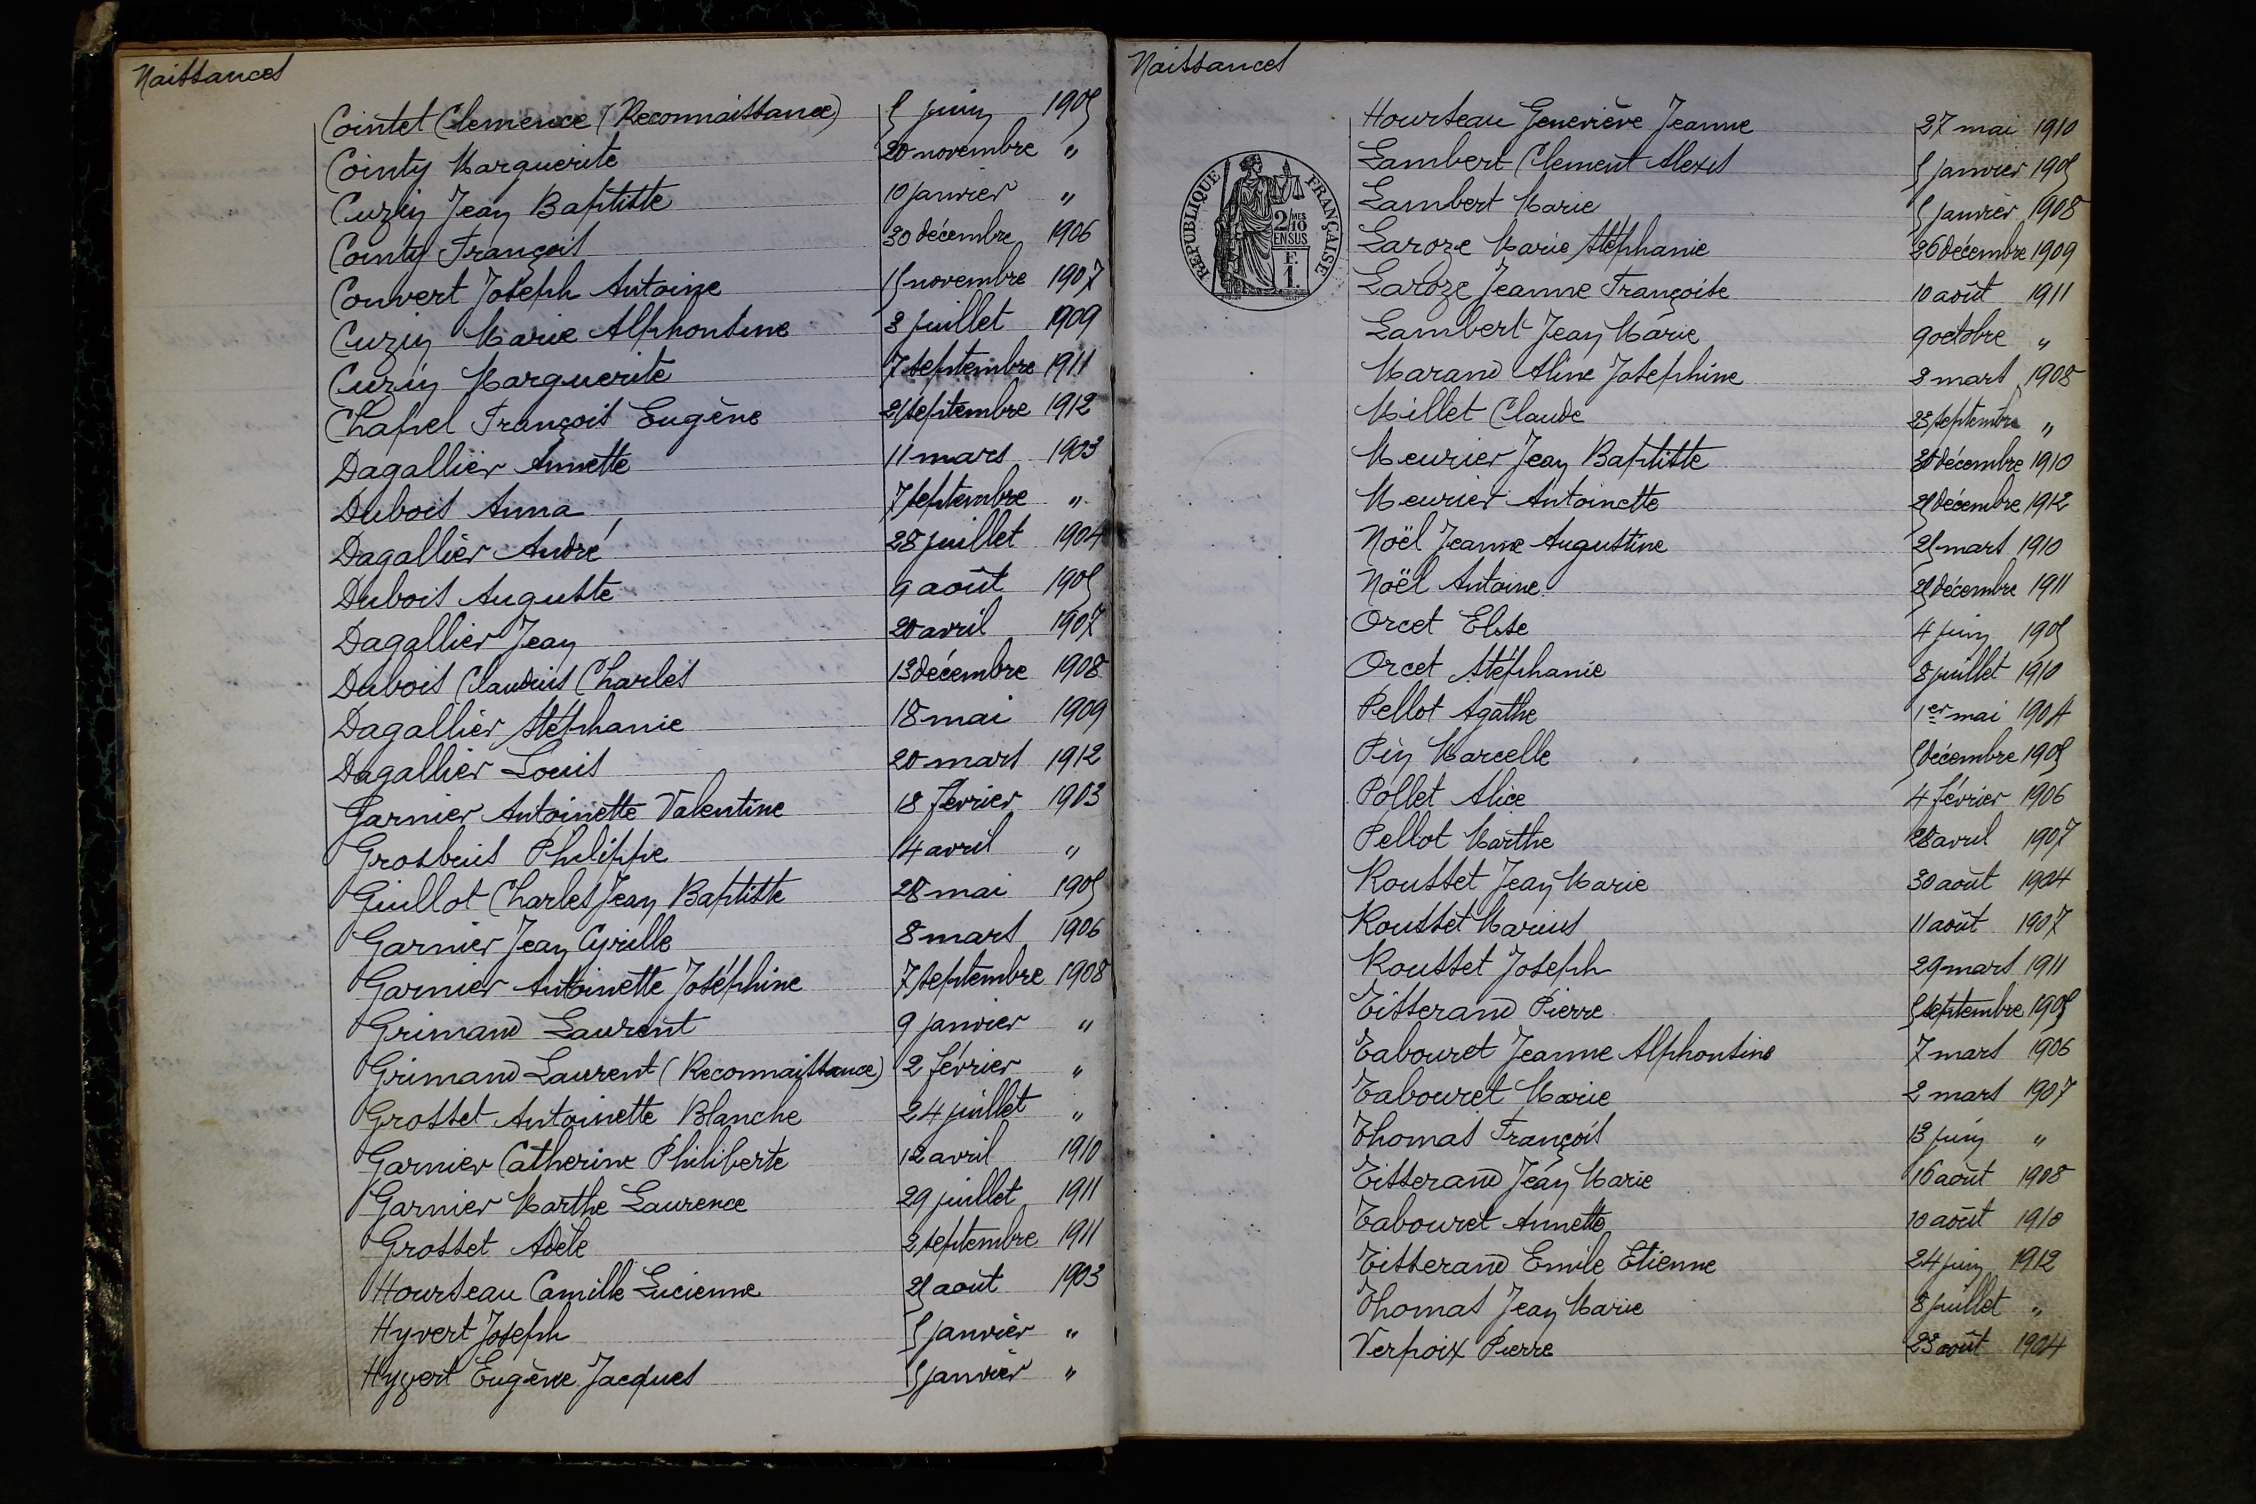 Naissances
Cointet Clemence (Reconnaissance) 5 juin 1905
Cointy Marguerite 20 novembre "
Cuzin Jean Baptiste 10 janvier "
Cointy François 30 décembre 1906
Convert Joseph Antoine 15 novembre 1907
Cuzin Marie Alphonsine 3 juillet 1909
Cuzin Marguerite 7 septembre 1911
Chapel François Eugène 21 septembre 1912
Dagallier Annette 11 mars 1903
Dubois Anna 7 septembre "
Dagallier André 28 juillet 1904
Dubois Auguste 9 août 1905
Dagallier Jean 20 avril 1907
Dubois Claudius Charles 13 décembre 1908
Dagallier Stéphanie 18 mai 1909
Dagallier Louis 20 mars 1912
Garnier Antoinette Valentine 18 février 1903
Grosbuis Philippe 14 avril "
Guillot Charles Jean Baptiste 28 mai 1905
Garnier Jean Cyrille 8 mars 1906
Garnier Antoinette Joséphine 7 septembre 1908
Grimand Laurent 9 janvier "
Grimand Laurent (Reconnaissance) 2 février "
Grosset Antoinette Blanche 24 juillet "
Garnier Catherine Philiberte 12 avril 1910
Garnier Marthe Laurence 29 juillet 1911
Grosset Adèle 2 septembre 1911
Hourseau Camille Lucienne 25 août 1903
Hyvert Joseph 5 janvier "
Hyvert Eugène Jacques 5 janvier "
Naissances
RÉPUBLIQUE FRANÇAISE
2/10 MES
EN SUS
F.
1.
Hourseau Geneviève Jeanne 27 mai 1910
Lambert Clement Alexis 5 janvier 1905
Lambert Marie 5 janvier 1908
Laroze Marie Stéphanie 26 décembre 1909
Laroze Jeanne Françoise 10 août 1911
Lambert Jean Marie 9 octobre "
Marand Aline Josephine 3 mars 1908
Millet Claude 23 septembre "
Meurier Jean Baptiste 30 décembre 1910
Meurier Antoinette 25 décembre 1912
Noël Jeanne Augustine 25 mars 1910
Noël Antoine 25 décembre 1911
Orcet Elise 4 juin 1905
Orcet Stéphanie 8 juillet 1910
Pellot Agathe 1er mai 1904
Pin Marcelle 5 décembre 1905
Pollet Alice 4 février 1906
Pellot Marthe 28 avril 1907
Rousset Jean Marie 30 août 1904
Rousset Marius 11 août 1907
Rousset Joseph 29 mars 1911
Tisserand Pierre 5 septembre 1905
Tabouret Jeanne Alphonsine 7 mars 1906
Tabouret Marie 2 mars 1907
Thomas François 13 juin "
Tisserand Jean Marie 16 août 1908
Tabouret Annette 10 août 1910
Tisserand Emile Etienne 24 juin 1912
Thomas Jean Marie 8 juillet "
Verpoix Pierre 23 août 1904